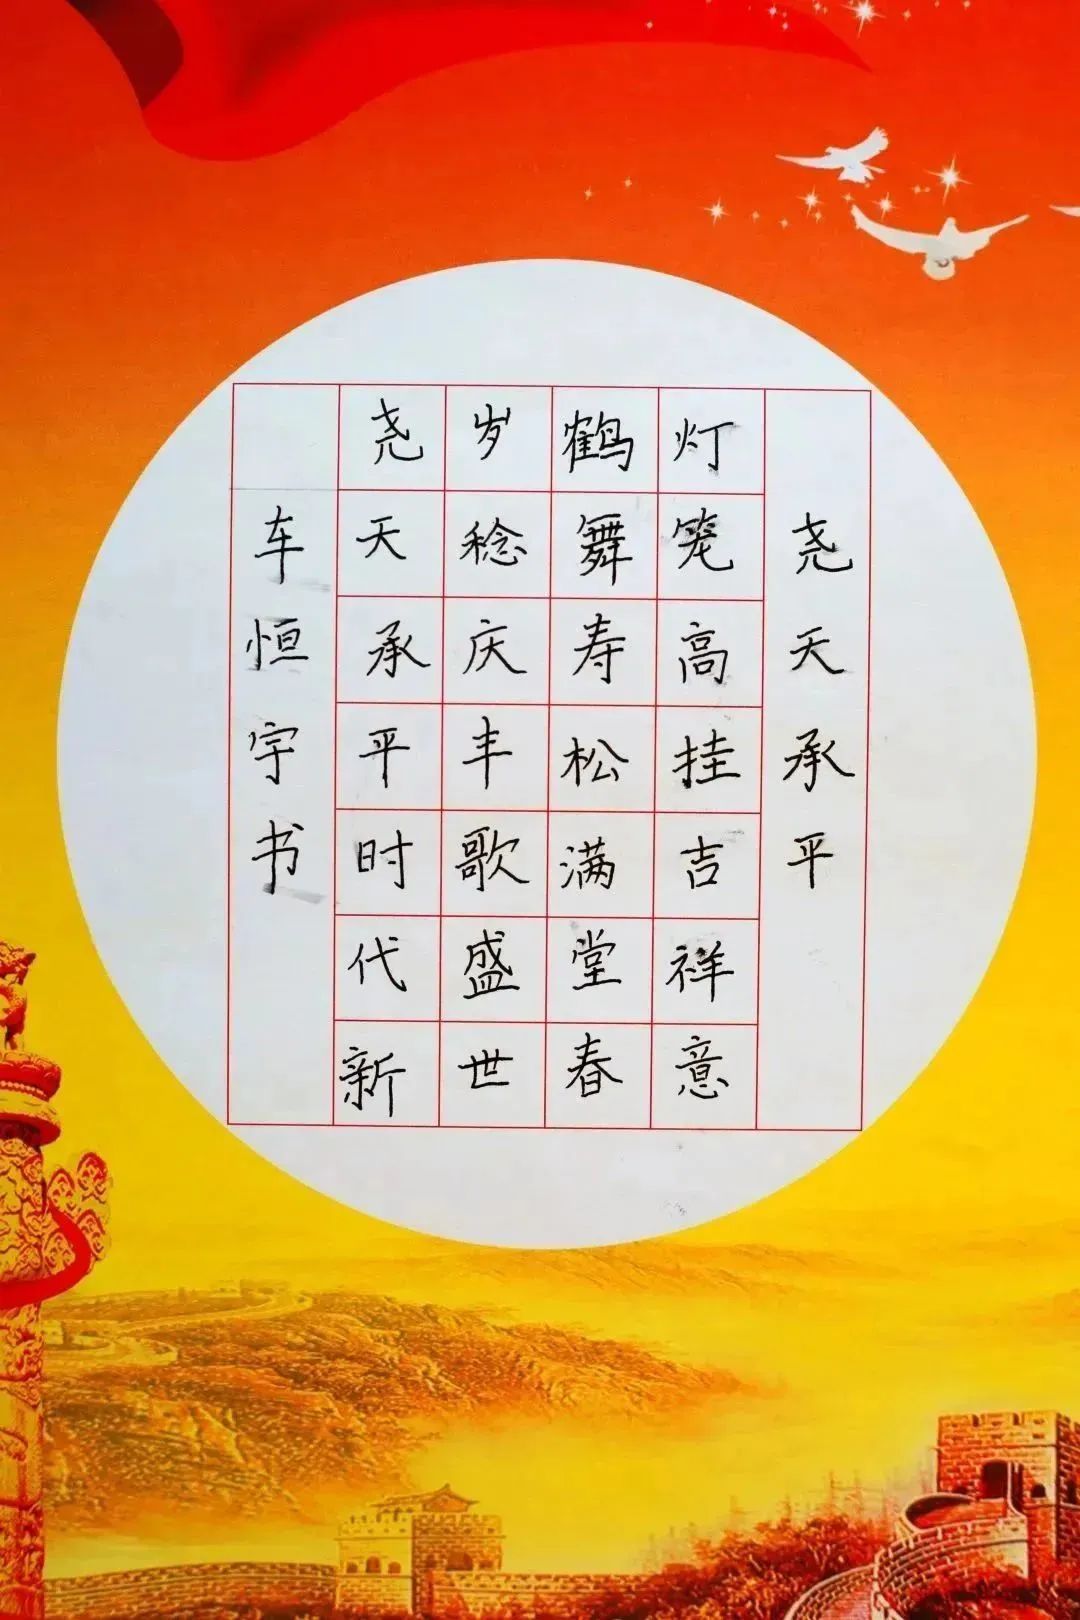 尧天承平
灯笼高挂吉祥意
鹤舞寿松满堂春
岁稔庆丰歌盛世
尧天承平时代新
车恒宇书